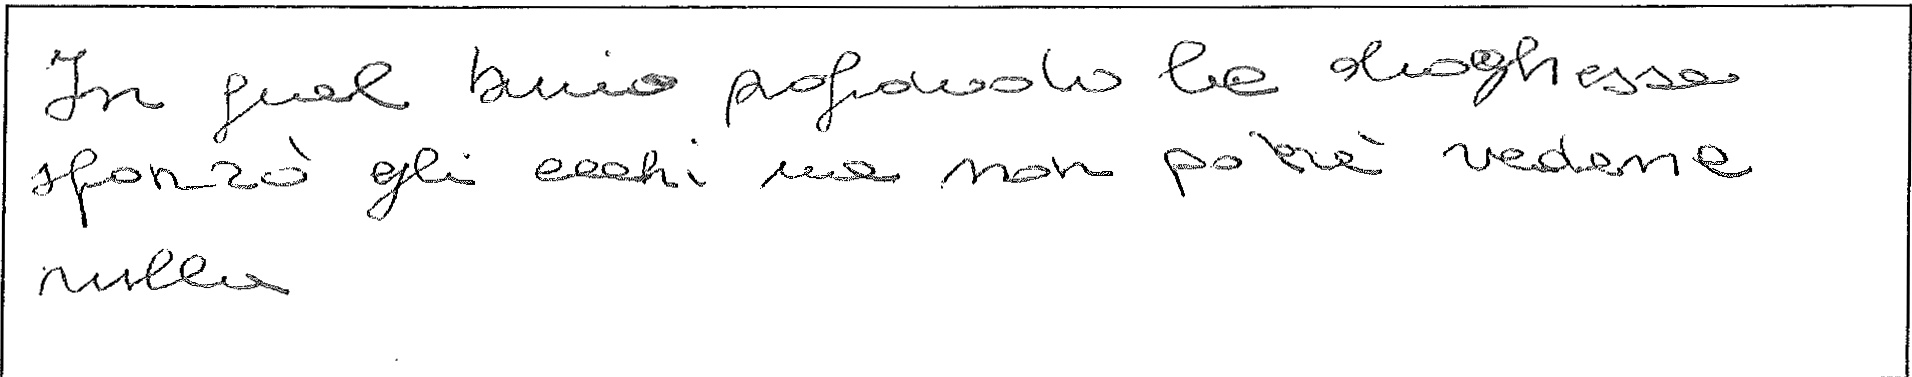 In quel buio profondo la draghessa
sforzò gli occhi ma non potrè vederne
nulla